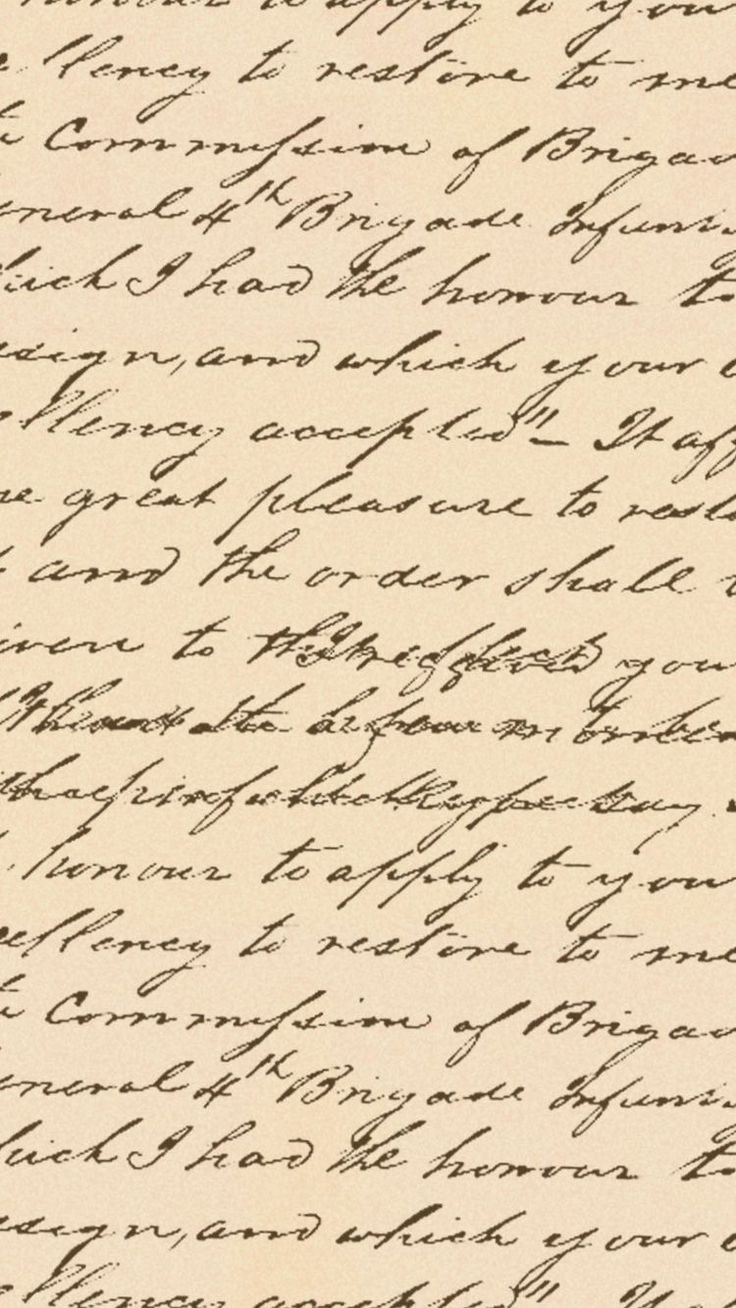 honour to apply to you
llency to restore to me
Commission of Brigad
eneral 4th Brigade Infant
hich I had the honour to
sign, and which your
ellency accepted" — It aff
me great pleasure to resto
and the order shall
iven to you
honour to apply to you
cellency to restore to me
Commission of Brigad
eneral 4th Brigade Infant
hich I had the honour to
sign, and which your
ellency accepted"